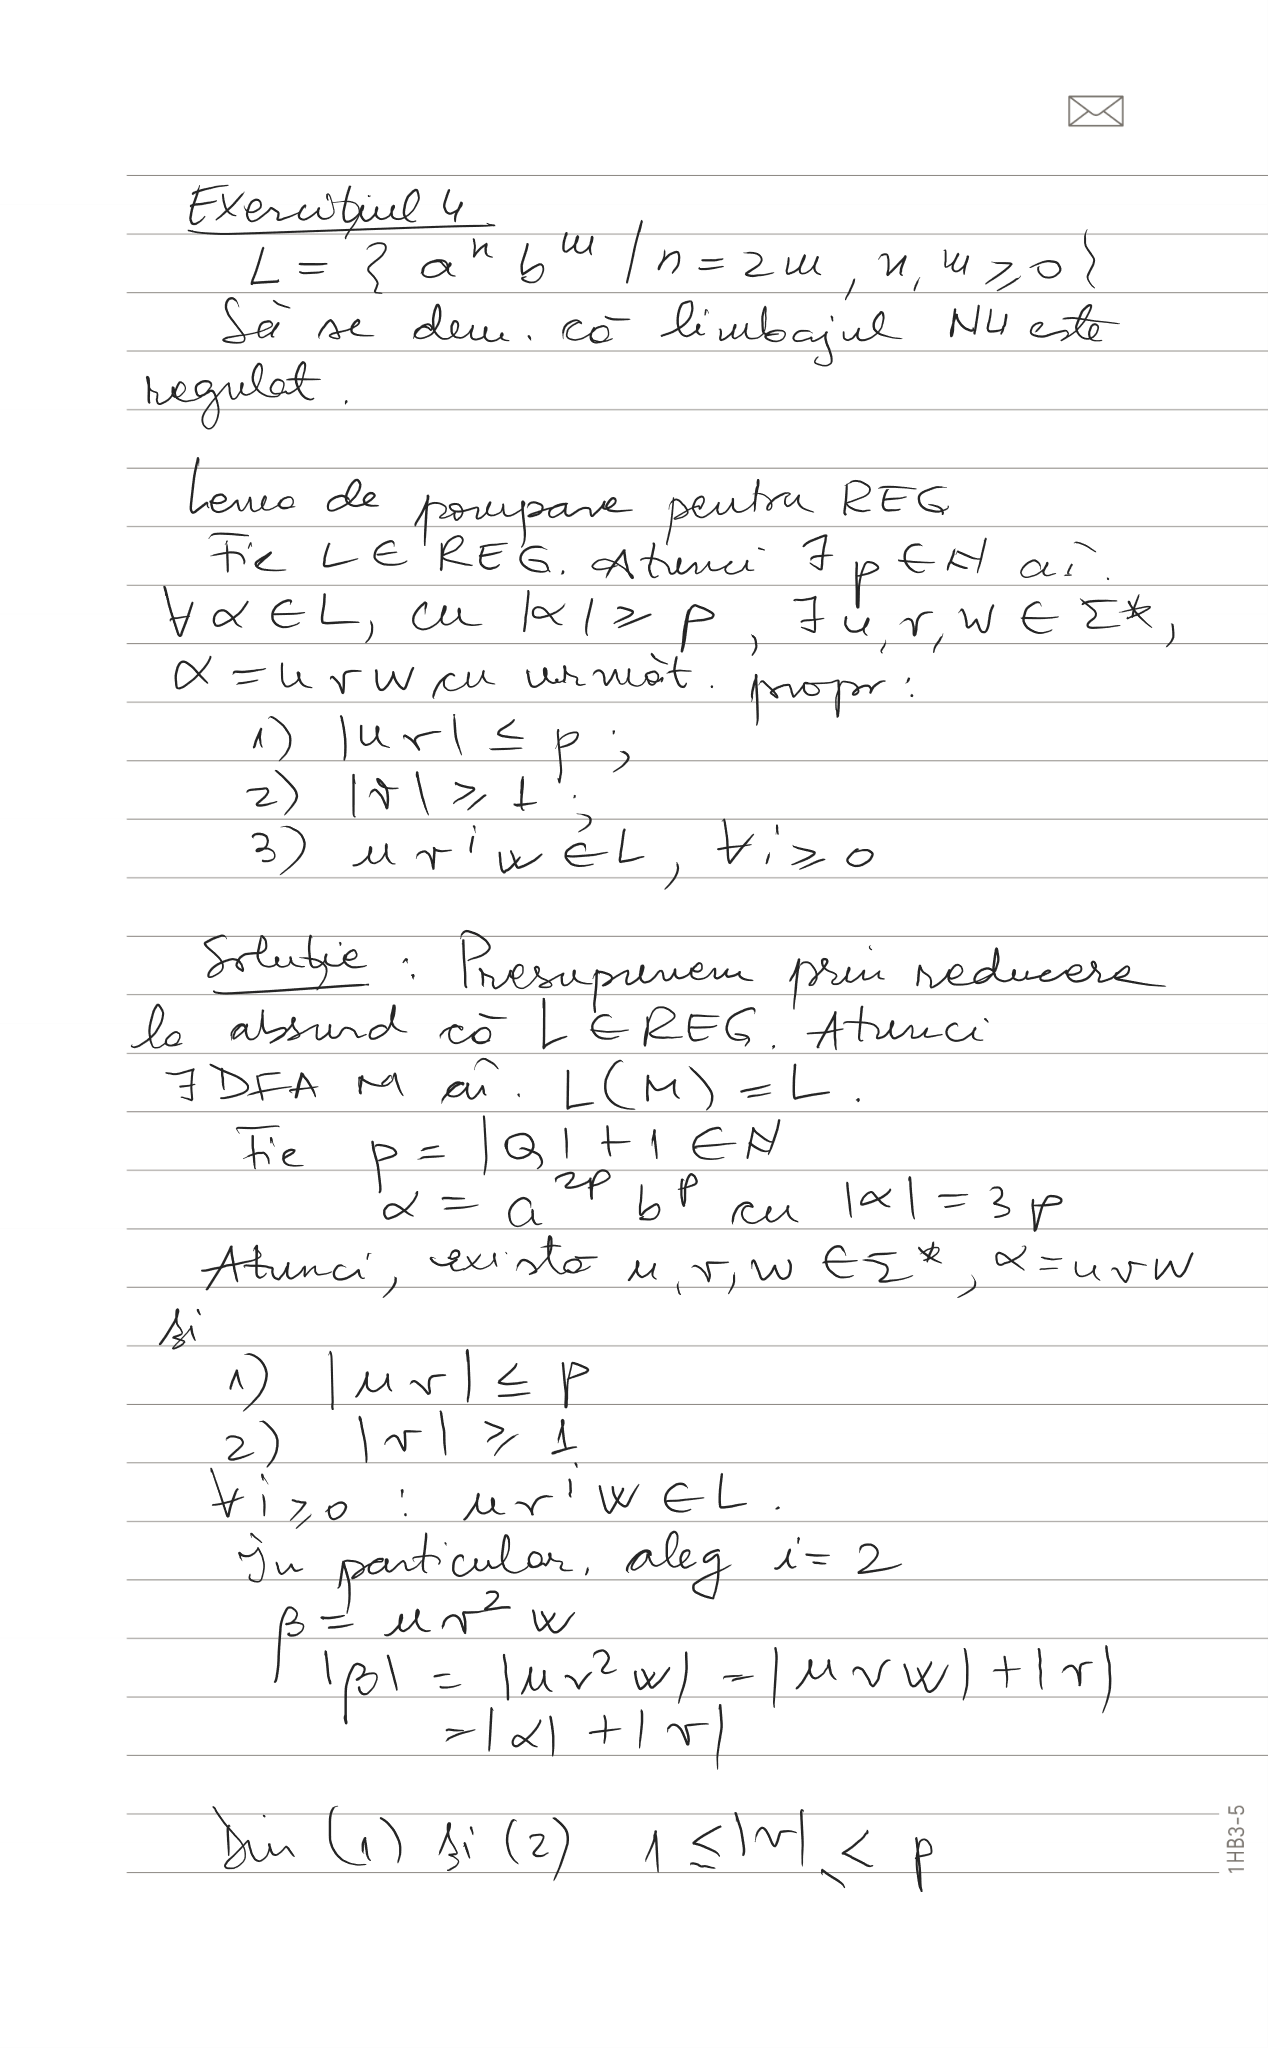 Exercițiul 4
L = { aⁿ bᵐ / n = 2m, n, m ≥ 0 }
Să se dem. că limbajul NU este
regulat.
Lema de pompare pentru REG
Fie L ∈ REG. Atunci ∃ p ∈ N aî.
∀ α ∈ L, cu |α| ≥ p, ∃ u, v, w ∈ Σ*,
α = uvw cu următ. propr:
1) |uv| ≤ p;
2) |v| ≥ 1;
3) uvⁱw ∈ L, ∀ i ≥ 0
Soluție: Presupunem prin reducere
la absurd că L ∈ REG. Atunci
∃ DFA M aî. L(M) = L.
Fie p = |Q| + 1 ∈ N
α = a²ᵖ bᵖ cu |α| = 3p
Atunci, există u, v, w ∈ Σ*, α = uvw
și
1) |uv| ≤ p
2) |v| ≥ 1
∀ i ≥ 0 : uvⁱw ∈ L.
În particular, aleg i = 2
β = uv²w
|β| = |uv²w| = |uvw| + |v|
= |α| + |v|
Din (1) și (2) 1 ≤ |v| ≤ p
1HB3-5